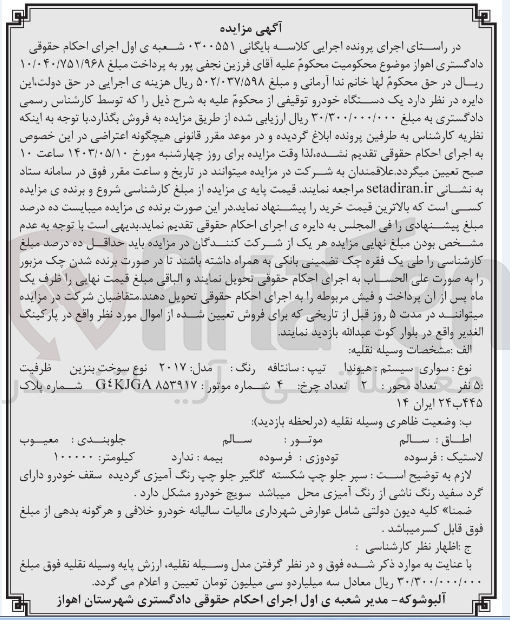 آگهی مزایده
در راستای اجرای پرونده اجرایی کلاسه بایگانی ۰۳۰۰۵۵۱ شعبه ی اول اجرای احکام حقوقی
دادگستری اهواز موضوع محکومیت محکومٌ علیه آقای فرزین نجفی پور به پرداخت مبلغ ۱۰/۰۴۰/۷۵۱/۹۶۸
ریال در حق محکومٌ لها خانم ندا آرمانی و مبلغ ۵۰۲/۰۳۷/۵۹۸ ریال هزینه ی اجرایی در حق دولت،این
دایره در نظر دارد یک دستگاه خودرو توقیفی از محکومٌ علیه به شرح ذیل را که توسط کارشناس رسمی
دادگستری به مبلغ ۳۰/۳۰۰/۰۰۰/۰۰۰ ریال ارزیابی شده از طریق مزایده به فروش بگذارد.با توجه به اینکه
نظریه کارشناس به طرفین پرونده ابلاغ گردیده و در موعد مقرر قانونی هیچگونه اعتراضی در این خصوص
به اجرای احکام حقوقی تقدیم نشده،لذا وقت مزایده برای روز چهارشنبه مورخ ۱۴۰۳/۰۵/۱۰ ساعت ۱۰
صبح تعیین میگردد.علاقمندان به شرکت در مزایده میتوانند در تاریخ و ساعت مقرر فوق در سامانه ستاد
به نشانی setadiran.ir مراجعه نمایند. قیمت پایه ی مزایده از مبلغ کارشناسی شروع و برنده ی مزایده
کسی است که بالاترین قیمت خرید را پیشنهاد نماید.در این صورت برنده ی مزایده میبایست ده درصد
مبلغ پیشنهادی را فی المجلس به دایره ی اجرای احکام حقوقی تقدیم نماید.بدیهی است با توجه به عدم
مشخص بودن مبلغ نهایی مزایده هر یک از شرکت کنندگان در مزایده باید حداقل ده درصد مبلغ
کارشناسی را طی یک فقره چک تضمینی بانکی به همراه داشته باشند تا در صورت برنده شدن چک مزبور
را به صورت علی الحساب به اجرای احکام حقوقی تحویل نمایند و الباقی مبلغ قیمت نهایی را ظرف یک
ماه پس از ان پرداخت و فیش مربوطه را به اجرای احکام حقوقی تحویل دهند.متقاضیان شرکت در مزایده
میتوانند در مدت ۵ روز قبل از تاریخی که برای فروش تعیین شده از اموال مورد نظر واقع در پارکینگ
الغدیر واقع در بلوار کوت عبدالله بازدید نمایند.
الف :مشخصات وسیله نقلیه:
نوع : سواری سیستم : هیوندا تیپ : سانتافه رنگ : مدل: ۲۰۱۷ نوع سوخت بنزین ظرفیت
:۵ نفر تعداد محور: ۲ تعداد چرخ: ۴ شماره موتور: G٤KJGA ۸۵۳۹۱۷ شماره پلاک
۴۴۵ب۲۴ ایران ۱۴
ب: وضعیت ظاهری وسیله نقلیه (درلحظه بازدید):
اطاق : سالم موتور : سالم جلوبندی : معیوب
لاستیک : فرسوده تودوزی : فرسوده بیمه : ندارد کیلومتر: ۱۰۰۰۰۰
لازم به توضیح است : سپر جلو چپ شکسته گلگیر جلو چپ رنگ آمیزی گردیده سقف خودرو دارای
گرد سفید رنگ ناشی از رنگ آمیزی محل میباشد سویچ خودرو مشکل دارد .
ضمنا» کلیه دیون دولتی شامل عوارض شهرداری مالیات سالیانه خودرو خلافی و هرگونه بدهی از مبلغ
فوق قابل کسرمیباشد .
ج :اظهار نظر کارشناسی :
با عنایت به موارد ذکر شده فوق و در نظر گرفتن مدل وسیله نقلیه، ارزش پایه وسیله نقلیه فوق مبلغ
۳۰/۳۰۰/۰۰۰/۰۰۰ ریال معادل سه میلیاردو سی میلیون تومان تعیین و اعلام می گردد.
آلبوشوکه- مدیر شعبه ی اول اجرای احکام حقوقی دادگستری شهرستان اهواز